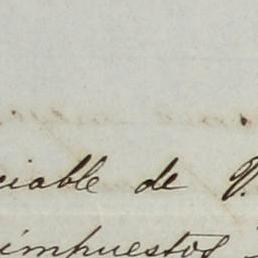 ciable de V.
impuestos